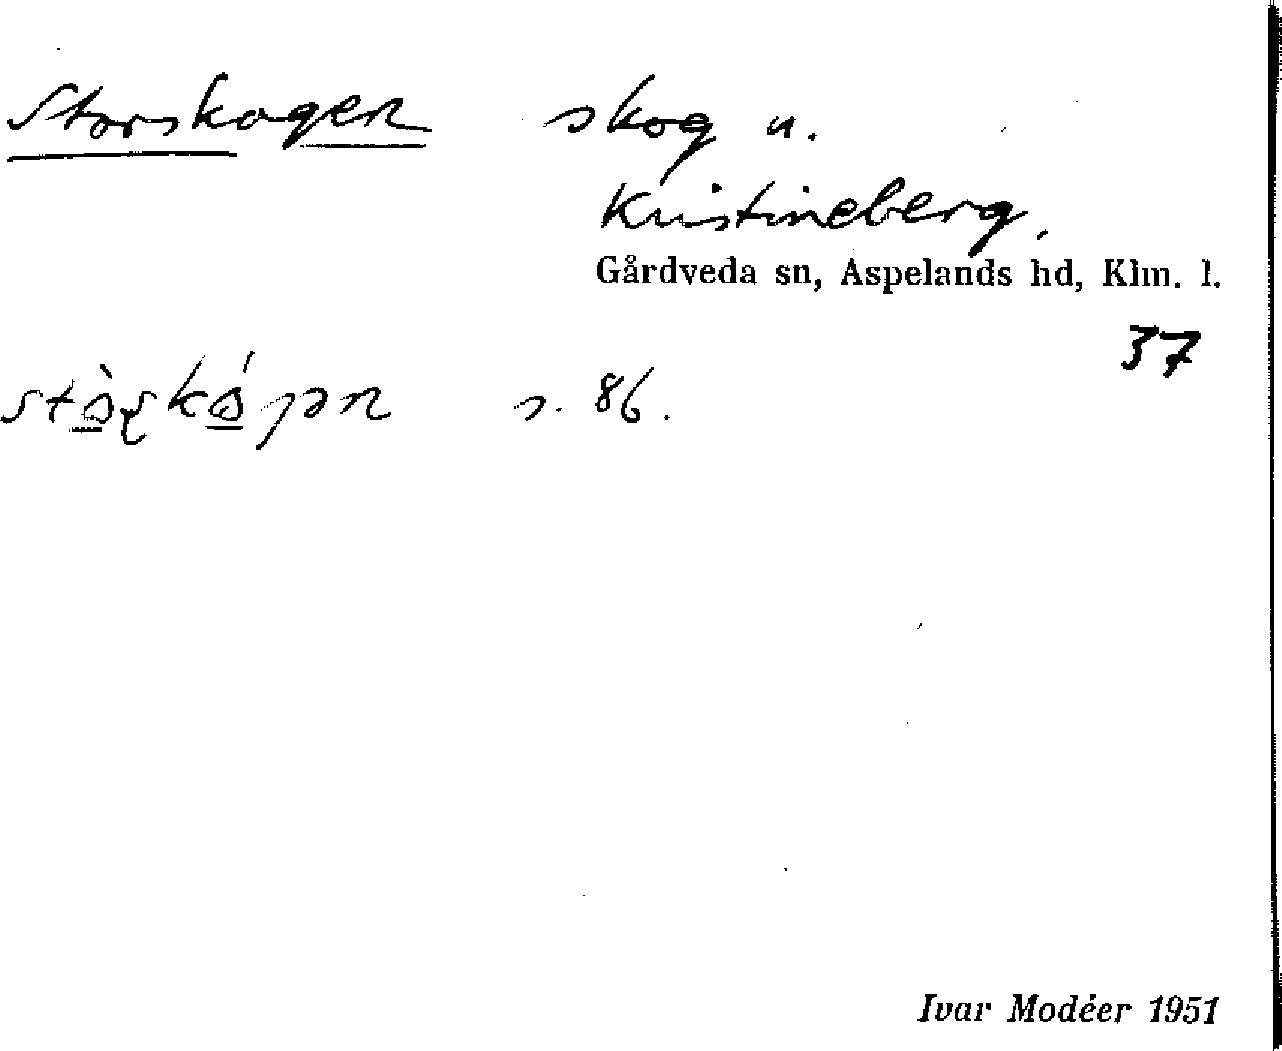 Storskogen skog u.
Kristineberg.
Gårdveda sn, Aspelands hd, Klm. l.
37
s. 86.
Ivar Modéer 1951